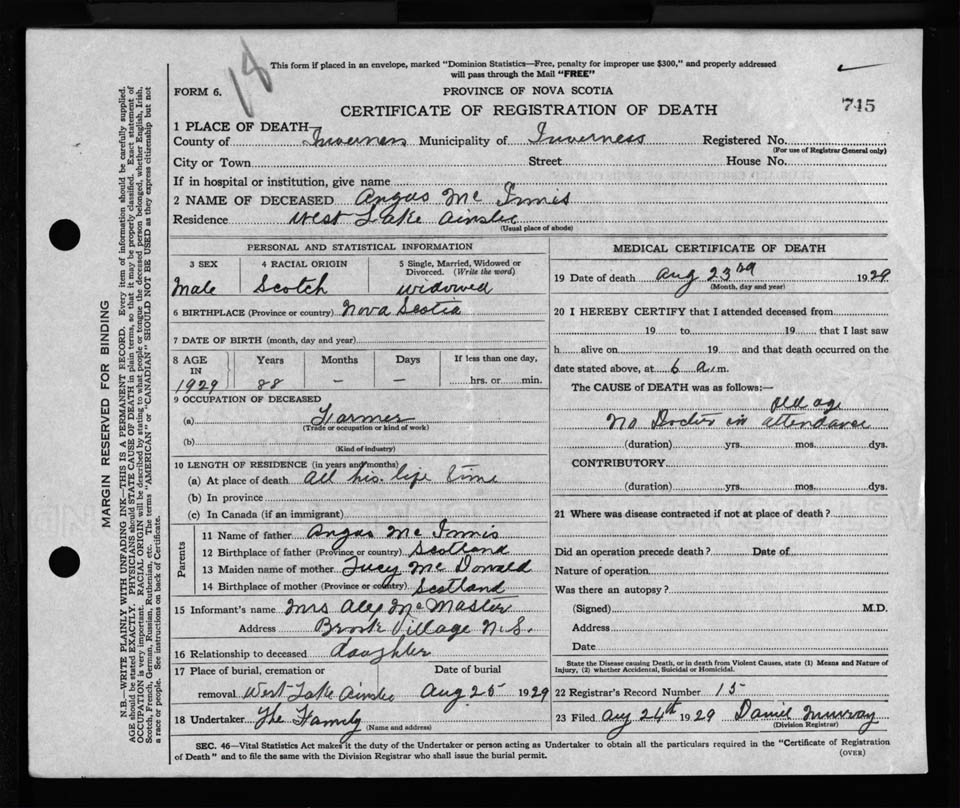 18
This form if placed in an envelope, marked "Dominion Statistics—Free, penalty for improper use $300," and properly addressed
will pass through the Mail "FREE"
FORM 6.
PROVINCE OF NOVA SCOTIA
CERTIFICATE OF REGISTRATION OF DEATH
745
1 PLACE OF DEATH—
County of Inverness Municipality of Inverness Registered No.
(For use of Registrar General only)
City or Town Street House No.
If in hospital or institution, give name
2 NAME OF DECEASED Angus Mc Innis
Residence West Lake Ainslie
(Usual place of abode)
PERSONAL AND STATISTICAL INFORMATION
3 SEX 4 RACIAL ORIGIN 5 Single, Married, Widowed or
Divorced. (Write the word)
Male Scotch widowed
6 BIRTHPLACE (Province or country) Nova Scotia
7 DATE OF BIRTH (month, day and year)
8 AGE IN 1929 Years Months Days If less than one day,
88 – – hrs. or min.
9 OCCUPATION OF DECEASED
(a) Farmer
(Trade or occupation or kind of work)
(b)
(Kind of industry)
10 LENGTH OF RESIDENCE (in years and months)
(a) At place of death All his life time
(b) In province
(c) In Canada (if an immigrant)
Parents
11 Name of father Angus Mc Innis
12 Birthplace of father (Province or country) Scotland
13 Maiden name of mother Lucy Mc Donald
14 Birthplace of mother (Province or country) Scotland
15 Informant's name Mrs Alex McMaster
Address Brook Village N.S.
16 Relationship to deceased daughter
17 Place of burial, cremation or Date of burial
removal West Lake Ainslie Aug 25 1929
18 Undertaker The Family
(Name and address)
MEDICAL CERTIFICATE OF DEATH
19 Date of death Aug 23rd 1929
(Month, day and year)
20 I HEREBY CERTIFY that I attended deceased from
19 to 19 that I last saw
h alive on 19 and that death occurred on the
date stated above, at 6 a.m.
The CAUSE of DEATH was as follows:—
old age
No Doctor in attendance
(duration) yrs. mos. dys.
CONTRIBUTORY
(duration) yrs. mos. dys.
21 Where was disease contracted if not at place of death?
Did an operation precede death? Date of
Nature of operation
Was there an autopsy?
(Signed) M.D.
Address
Date
State the Disease causing Death, or in death from Violent Causes, state (1) Means and Nature of
Injury, (2) whether Accidental, Suicidal or Homicidal.
22 Registrar's Record Number 15
23 Filed Aug 24th 1929 Daniel Murray
(Division Registrar)
SEC. 46—Vital Statistics Act makes it the duty of the Undertaker or person acting as Undertaker to obtain all the particulars required in the "Certificate of Registration
of Death" and to file the same with the Division Registrar who shall issue the burial permit.
(OVER)
MARGIN RESERVED FOR BINDING
N.B.—WRITE PLAINLY WITH UNFADING INK—THIS IS A PERMANENT RECORD. Every item of information should be carefully supplied.
AGE should be stated EXACTLY. PHYSICIANS should STATE CAUSE OF DEATH in plain terms, so that it may be properly classified. Exact statement of
OCCUPATION is very important. RACIAL ORIGIN will be described by stating to what people or tongue the deceased person belonged, whether English, Irish,
Scotch, French, German, Russian, Ruthenian, etc. The terms "AMERICAN" or "CANADIAN" SHOULD NOT BE USED as they express citizenship but not
a race or people. See instructions on back of Certificate.